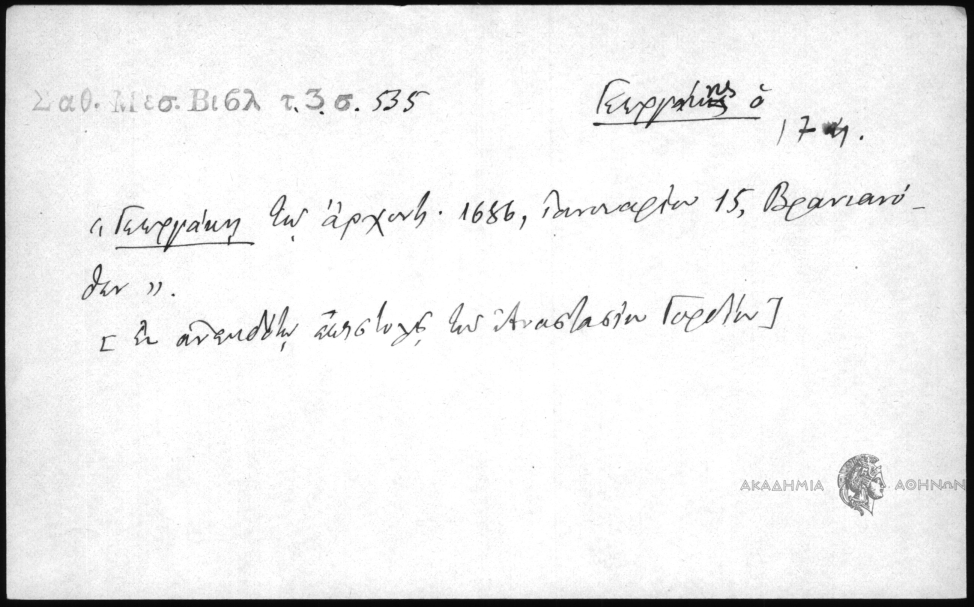 Σαθ. Μεσ. Βιβλ τ. 3 σ. 535
Γεωργάκης ὁ
17
«Γεωργάκη τῷ ἄρχοντι. 1686, Ἰανουαρίου 15, Βρανιανό-
θεν».
[Ἐν ἀνεκδότῳ ἐπιστολῇ τοῦ Ἀναστασίου Γορδίου]
ΑΚΑΔΗΜΙΑ ΑΘΗΝΩΝ